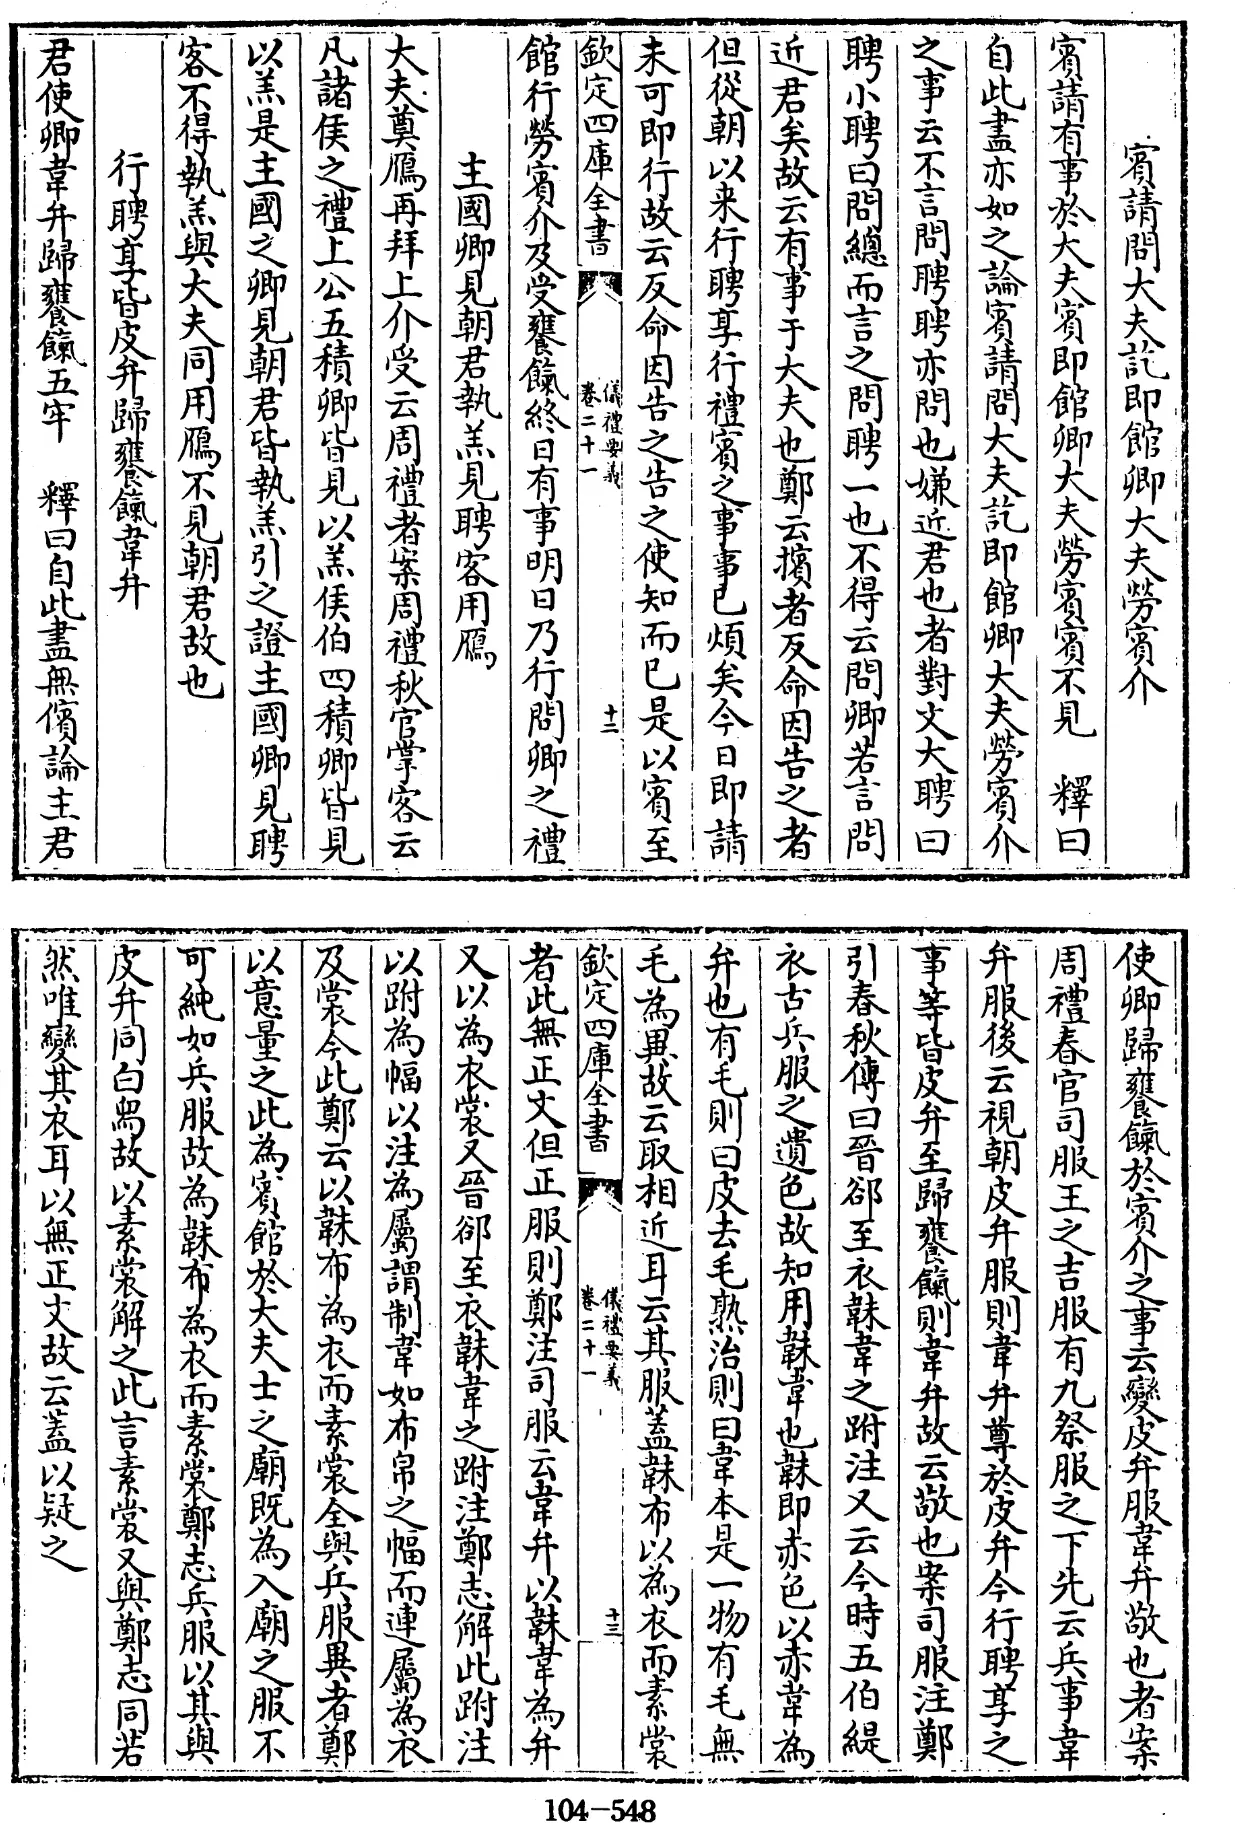 賔請問大夫訖即館卿大夫勞賔介
賔請有事於大夫賔即館卿大夫勞賔賔不見　釋曰
自此盡亦如之論賔請問大夫訖即館卿大夫勞賔介
之事云不言問聘聘亦問也嫌近君也者對文大聘曰
聘小聘曰問總而言之問聘一也不得云問卿若言問
近君矣故云有事于大夫也鄭云擯者反命因告之者
但從朝以来行聘享行禮賔之事事已煩矣今日即請
未可即行故云反命因告之告之使知而已是以賔至
欽定四庫全書
儀禮要義
卷二十一
十二
館行勞賔介及受饔餼終日有事明日乃行問卿之禮
主國卿見朝君執羔見聘客用鴈
大夫奠鴈再拜上介受云周禮者案周禮秋官掌客云
凡諸侯之禮上公五積卿皆見以羔侯伯四積卿皆見
以羔是主國之卿見朝君皆執羔引之證主國卿見聘
客不得執羔與大夫同用鴈不見朝君故也
行聘享皆皮弁歸饔餼韋弁
君使卿韋弁歸饔餼五牢　釋曰自此盡無儐論主君
使卿歸饔餼於賔介之事云變皮弁服韋弁敬也者案
周禮春官司服王之吉服有九祭服之下先云兵事韋
弁服後云視朝皮弁服則韋弁尊於皮弁今行聘享之
事等皆皮弁至歸饔餼則韋弁故云敬也案司服注鄭
引春秋傳曰晉郤至衣韎韋之跗注又云今時五伯緹
衣古兵服之遺色故知用韎韋也韎即赤色以赤韋為
弁也有毛則曰皮去毛熟治則曰韋本是一物有毛無
毛為異故云取相近耳云其服蓋韎布以為衣而素裳
欽定四庫全書
儀禮要義
卷二十一
十三
者此無正文但正服則鄭注司服云韋弁以韎韋為弁
又以為衣裳又晉郤至衣韎韋之跗注鄭志解此跗注
以跗為幅以注為屬謂制韋如布帛之幅而連屬為衣
及裳今此鄭云以韎布為衣而素裳全與兵服異者鄭
以意量之此為賔館於大夫士之廟既為入廟之服不
可純如兵服故為韎布為衣而素裳鄭志兵服以其與
皮弁同白舄故以素裳解之此言素裳又與鄭志同若
然唯變其衣耳以無正文故云蓋以疑之
104-548